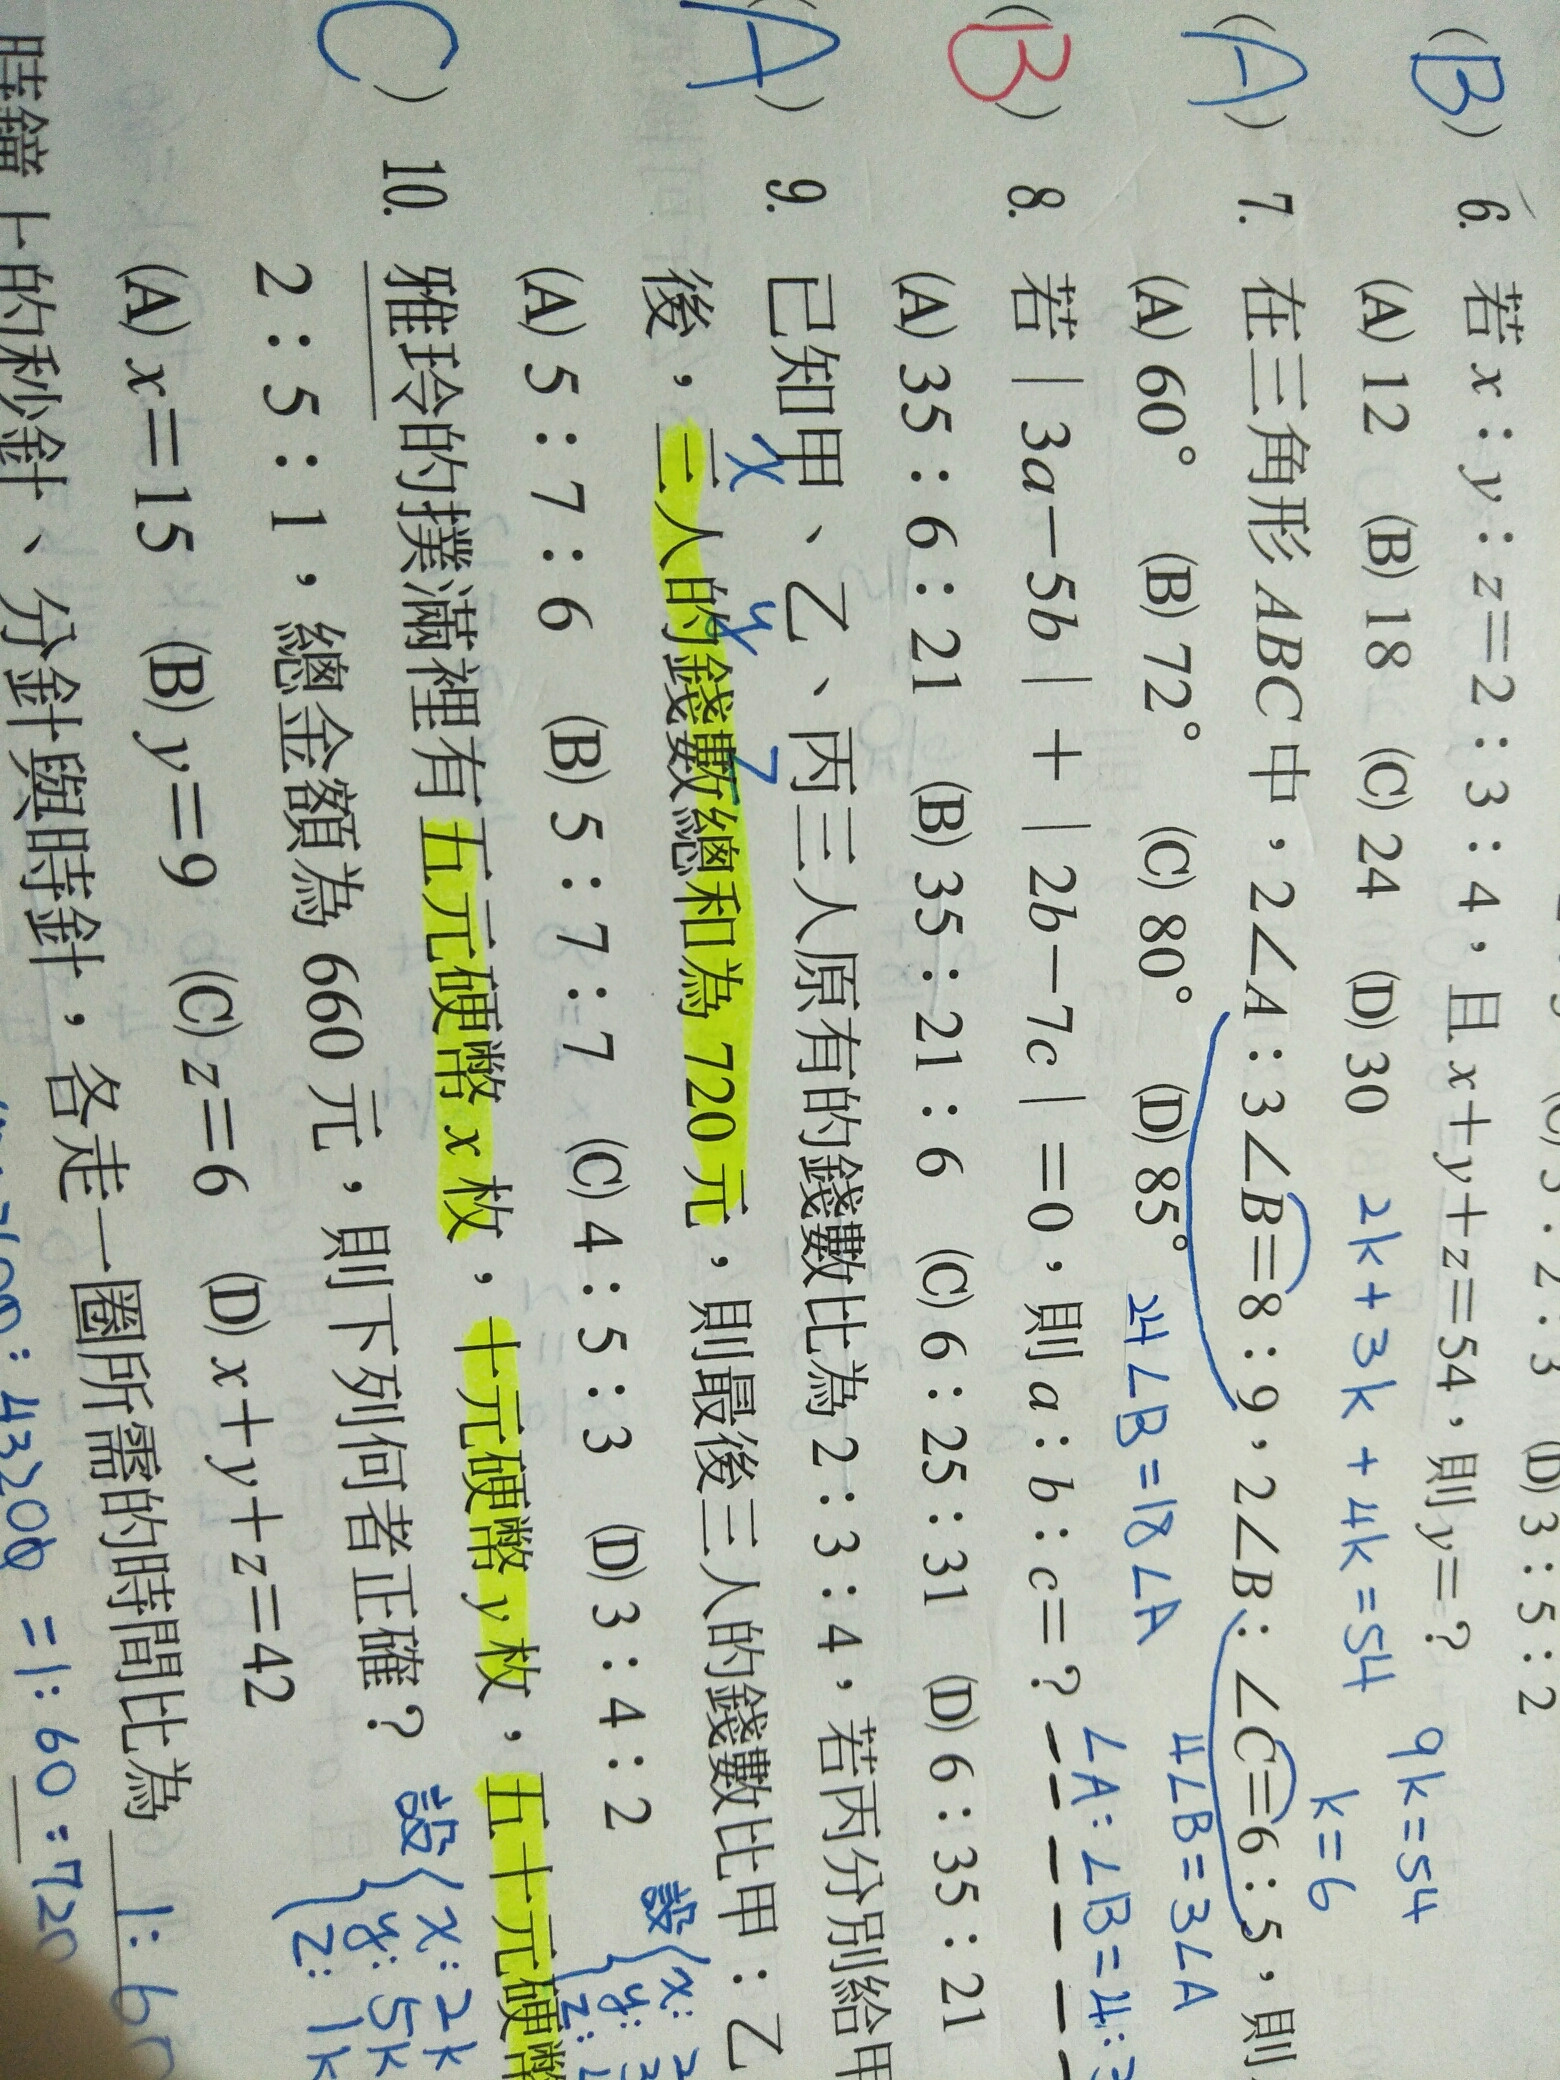 (D) 3：5：2
(B) 6. 若 x：y：z＝2：3：4，且 x＋y＋z＝54，則 y＝？
9k＝54
(A) 12 (B) 18 (C) 24 (D) 30 2k＋3k＋4k＝54 k＝6
(A) 7. 在三角形 ABC 中，2∠A：3∠B＝8：9，2∠B：∠C＝6：5，則
(A) 60° (B) 72° (C) 80° (D) 85° 24∠B＝18∠A 4∠B＝3∠A
∠A：∠B＝4：3
(B) 8. 若｜3a－5b｜＋｜2b－7c｜＝0，則 a：b：c＝？
(A) 35：6：21 (B) 35：21：6 (C) 6：25：31 (D) 6：35：21
(A) 9. 已知甲、乙、丙三人原有的錢數比為 2：3：4，若丙分別給甲
x y z
後，三人的錢數總和為 720 元，則最後三人的錢數比甲：乙
(A) 5：7：6 (B) 5：7：7 (C) 4：5：3 (D) 3：4：2
設 x：
y：
z：
(C) 10. 雅玲的撲滿裡有五元硬幣 x 枚，十元硬幣 y 枚，五十元硬幣
2：5：1，總金額為 660 元，則下列何者正確？
設 x：2k
y：5k
z：1k
(A) x＝15 (B) y＝9 (C) z＝6 (D) x＋y＋z＝42
時鐘上的秒針、分針與時針，各走一圈所需的時間比為 1：60
：43200 ＝1：60：720